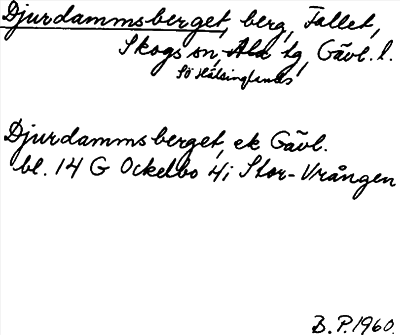 Djurdammsberget, berg, Fallet,
Skogs sn, Ala tg, Gävl. l.
Sö Hälsinglands
Djurdammsberget, ek Gävl.
bl. 14 G Ockelbo 4i Stor-Vrången
B.P. 1960.